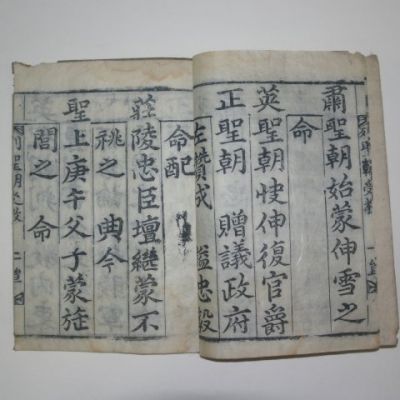 肅聖朝始蒙伸雪之
命
英聖朝快伸復官爵
正聖朝 贈議政府
左讚成 謚忠毅
命配
莊陵忠臣壇繼蒙不
祧之典今
聖上庚午父子蒙旌
閭之命
列聖朝受教 二